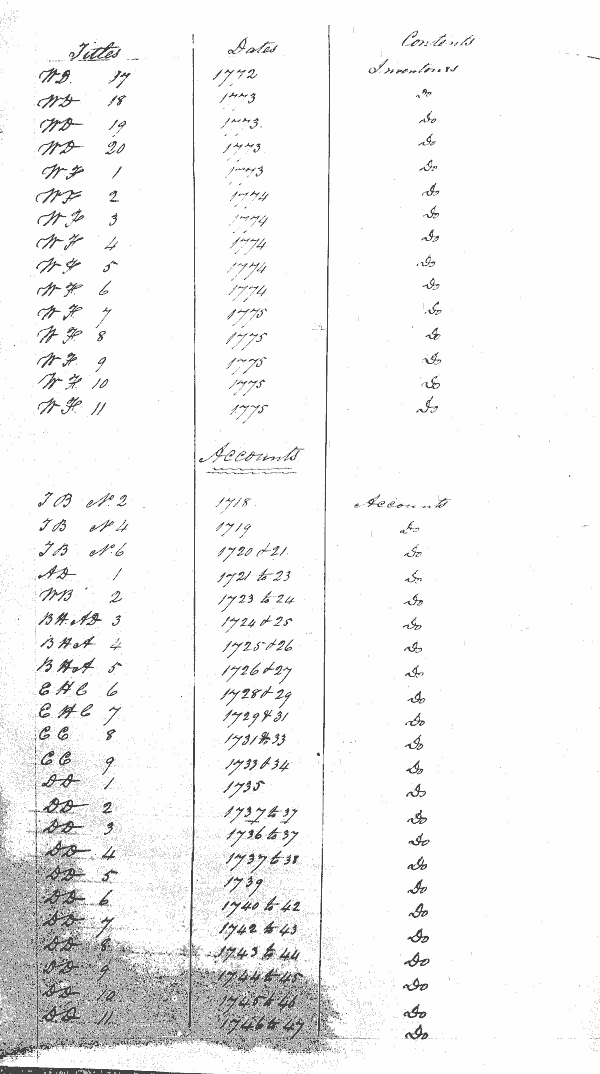 Titles Dates Contents
WD. 17 1772 Inventories
WD 18 1773 Do
WD 19 1773. Do
WD 20 1773 Do
WF 1 1773 Do
WF 2 1774 Do
WF 3 1774 Do
WF 4 1774 Do
WF 5 1774 Do
WF 6 1774 Do
WF 7 1775 Do
WF 8 1775 Do
WF 9 1775 Do
WF 10 1775 Do
WF 11 1775 Do
Accounts
TB No. 2 1718. Accounts
TB No 4 1719 Do
TB No 6 1720 & 21. Do
AD 1 1721 to 23 Do
WB 2 1723 to 24 Do
BHAD 3 1724 & 25 Do
BHA 4 1725 & 26 Do
BHA 5 1726 & 27 Do
EHC 6 1728 & 29 Do
EHC 7 1729 & 31 Do
CC 8 1731 & 33 Do
CC 9 1733 & 34 Do
DD 1 1735 Do
DD 2 1737 to 37 Do
DD 3 1736 to 37 Do
DD 4 1737 to 38 Do
DD 5 1739 Do
DD 6 1740 to 42 Do
DD 7 1742 to 43 Do
DD 8 1743 to 44 Do
DD 9 1744 to 45 Do
DD 10 1745 to 46 Do
DD 11 1746 to 47 Do